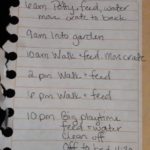 6am Potty, feed, water
move crate to back
9am Into garden
10am Walk + feed. Mos crate
2pm Walk + feed
6pm Walk + feed
10pm Big playtime
feed + water
Clean off
Off to bed 11:30